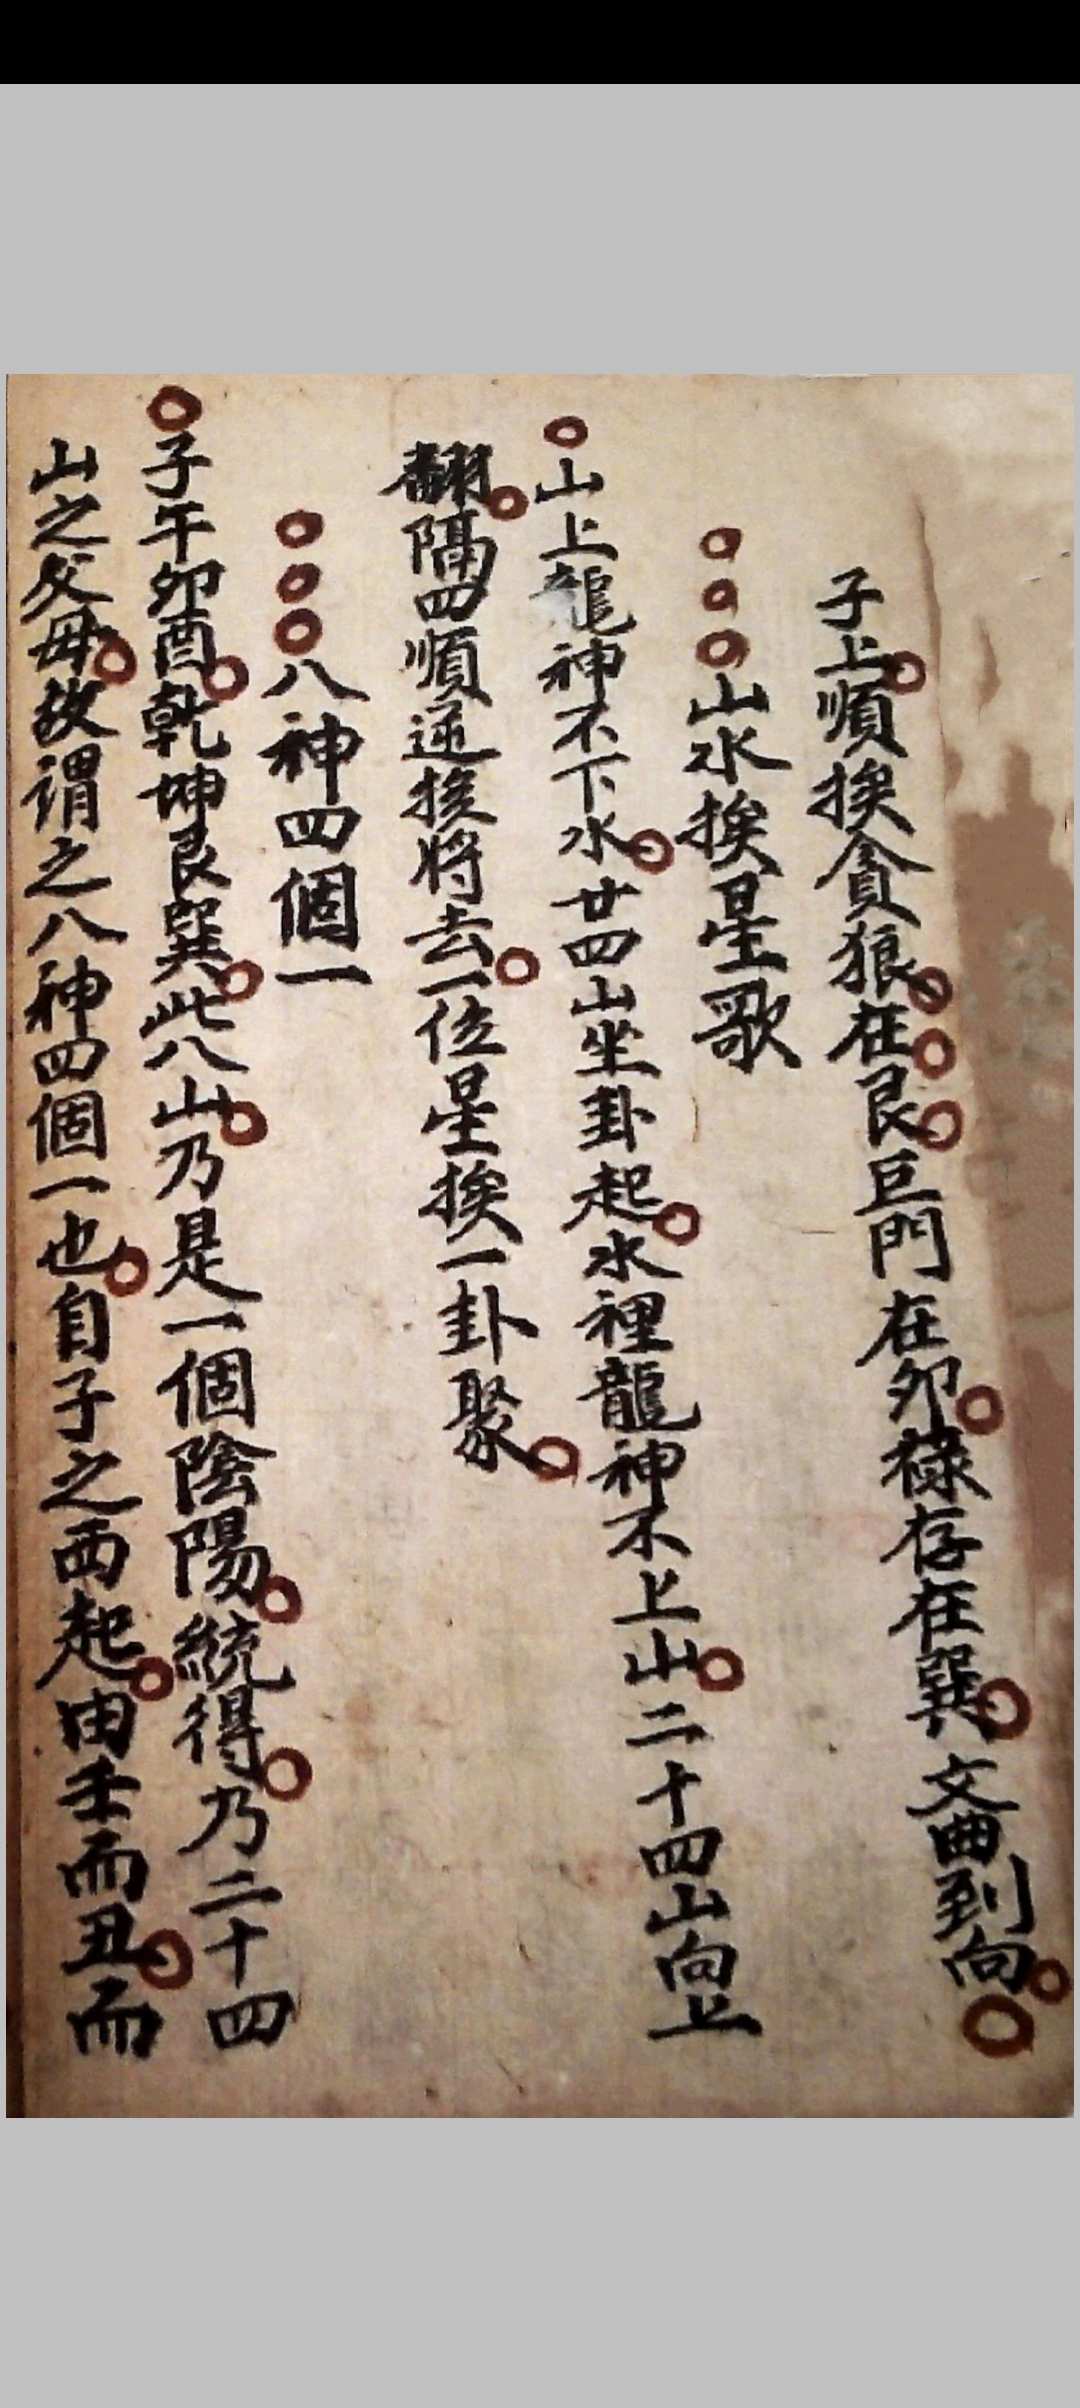 子上順挨貪狼在艮巨門在卯祿存在巽文曲到向
山水挨星歌
山上龍神不下水廿四山坐卦起水裡龍神不上山二十四山向上
翻隔四順逆挨將去一位星挨一卦聚
八神四個一
子午卯酉乾坤艮巽此八山乃是一個陰陽統得乃二十四
山之父母故谓之八神四個一也自子之西起由壬而丑而